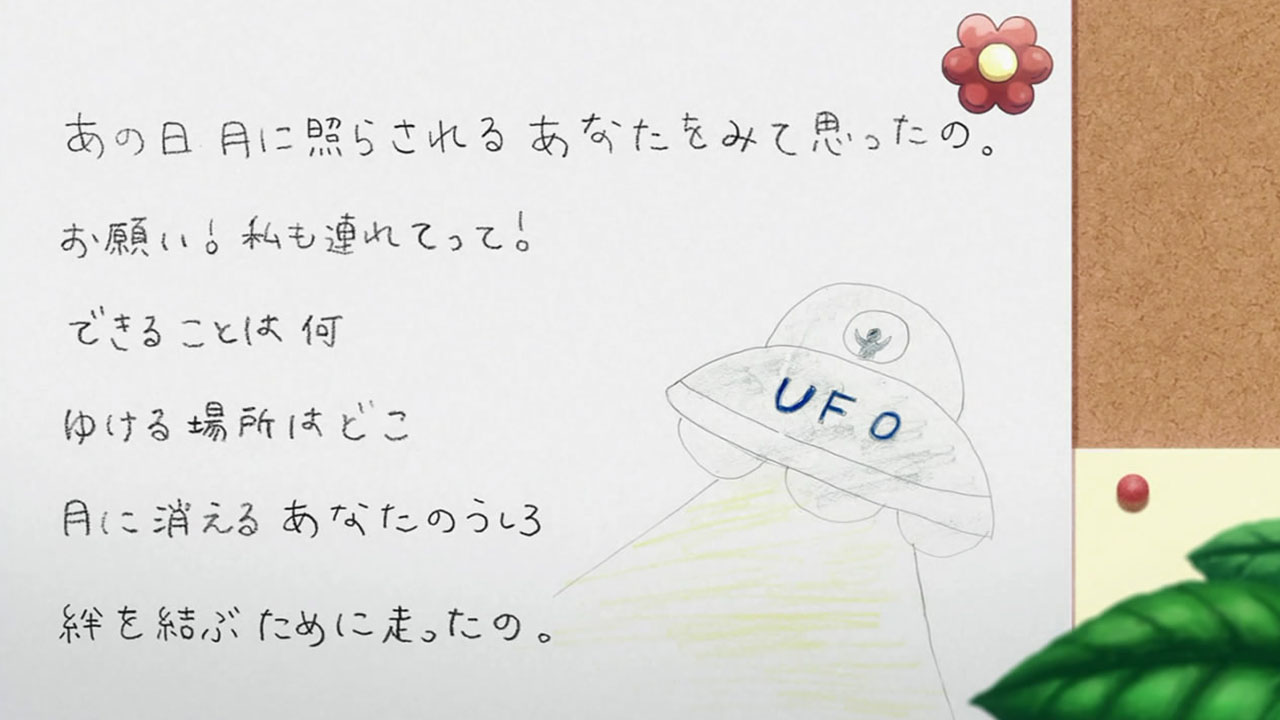 あの日 月に照らされる あなたをみて思ったの。
お願い! 私も連れてって!
できることは 何
ゆける場所はどこ
UFO
月に消える あなたのうしろ
絆を結ぶために走ったの。